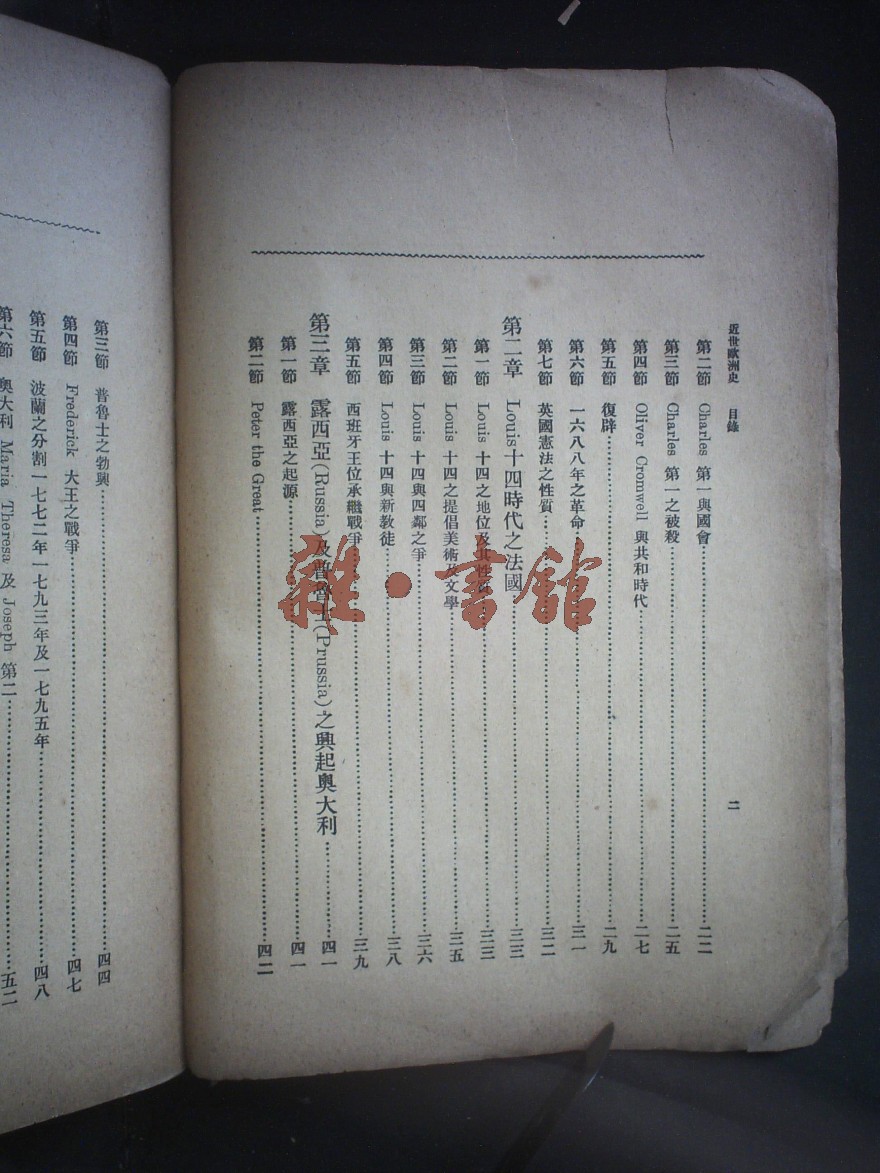 近世歐洲史 目錄 二
第二節 Charles 第一與國會 二二
第三節 Charles 第一之被殺 二五
第四節 Oliver Cromwell 與共和時代 二七
第五節 復辟 二九
第六節 一六八八年之革命 三一
第七節 英國憲法之性質 三二
第二章 Louis十四時代之法國 三三
第一節 Louis 十四之地位及其性質 三三
第二節 Louis 十四之提倡美術及文學 三五
第三節 Louis 十四與四鄰之爭 三六
第四節 Louis 十四與新教徒 三八
第五節 西班牙王位承繼戰爭 三九
第三章 露西亞(Russia)及普魯士(Prussia)之興起奧大利 四一
第一節 露西亞之起源 四一
第二節 Peter the Great 四二
第三節 普魯士之勃興 四四
第四節 Frederick 大王之戰爭 四七
第五節 波蘭之分割一七七二年一七九三年及一七九五年 四八
第六節 奧大利 Maria Theresa 及 Joseph 第二 五二
雜·書館